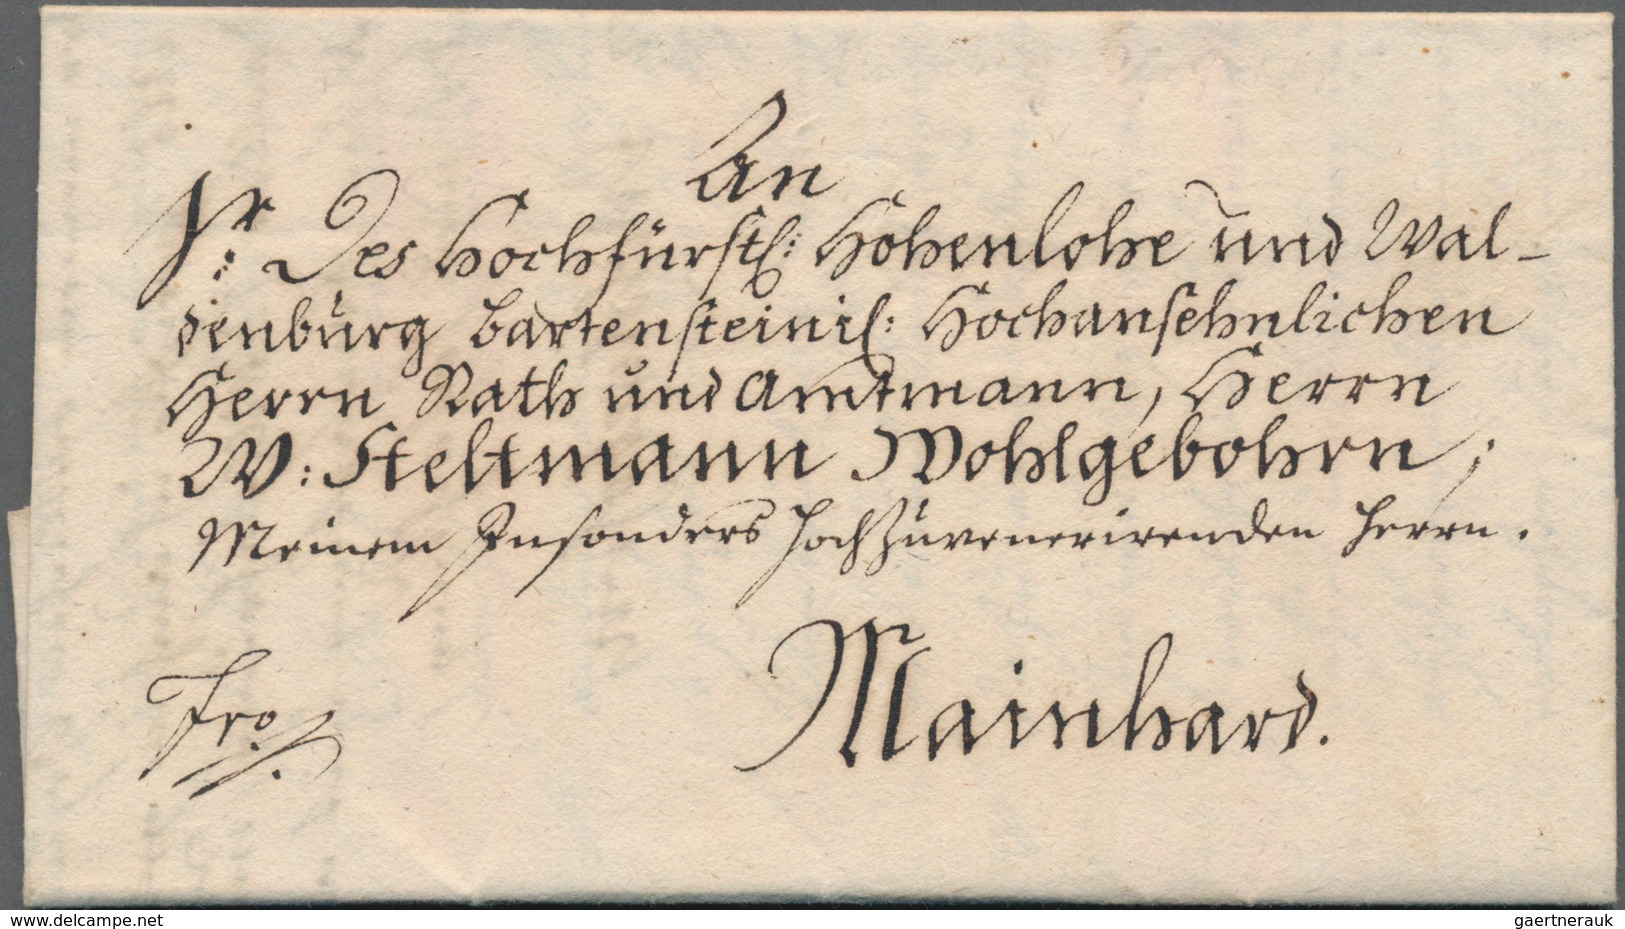 An
Sr: Des Hochfürstl: Hohenlohe und Wal-
denburg Bartensteinis: Hochansehnlichen
Herrn Rath und Amtmann, Herrn
W: Steltmann Wohlgebohrn,
Meinem Insonders Hochzuvenerirenden Herrn.
Mainhard.
Fro
www.delcampe.net
gaertnerauk